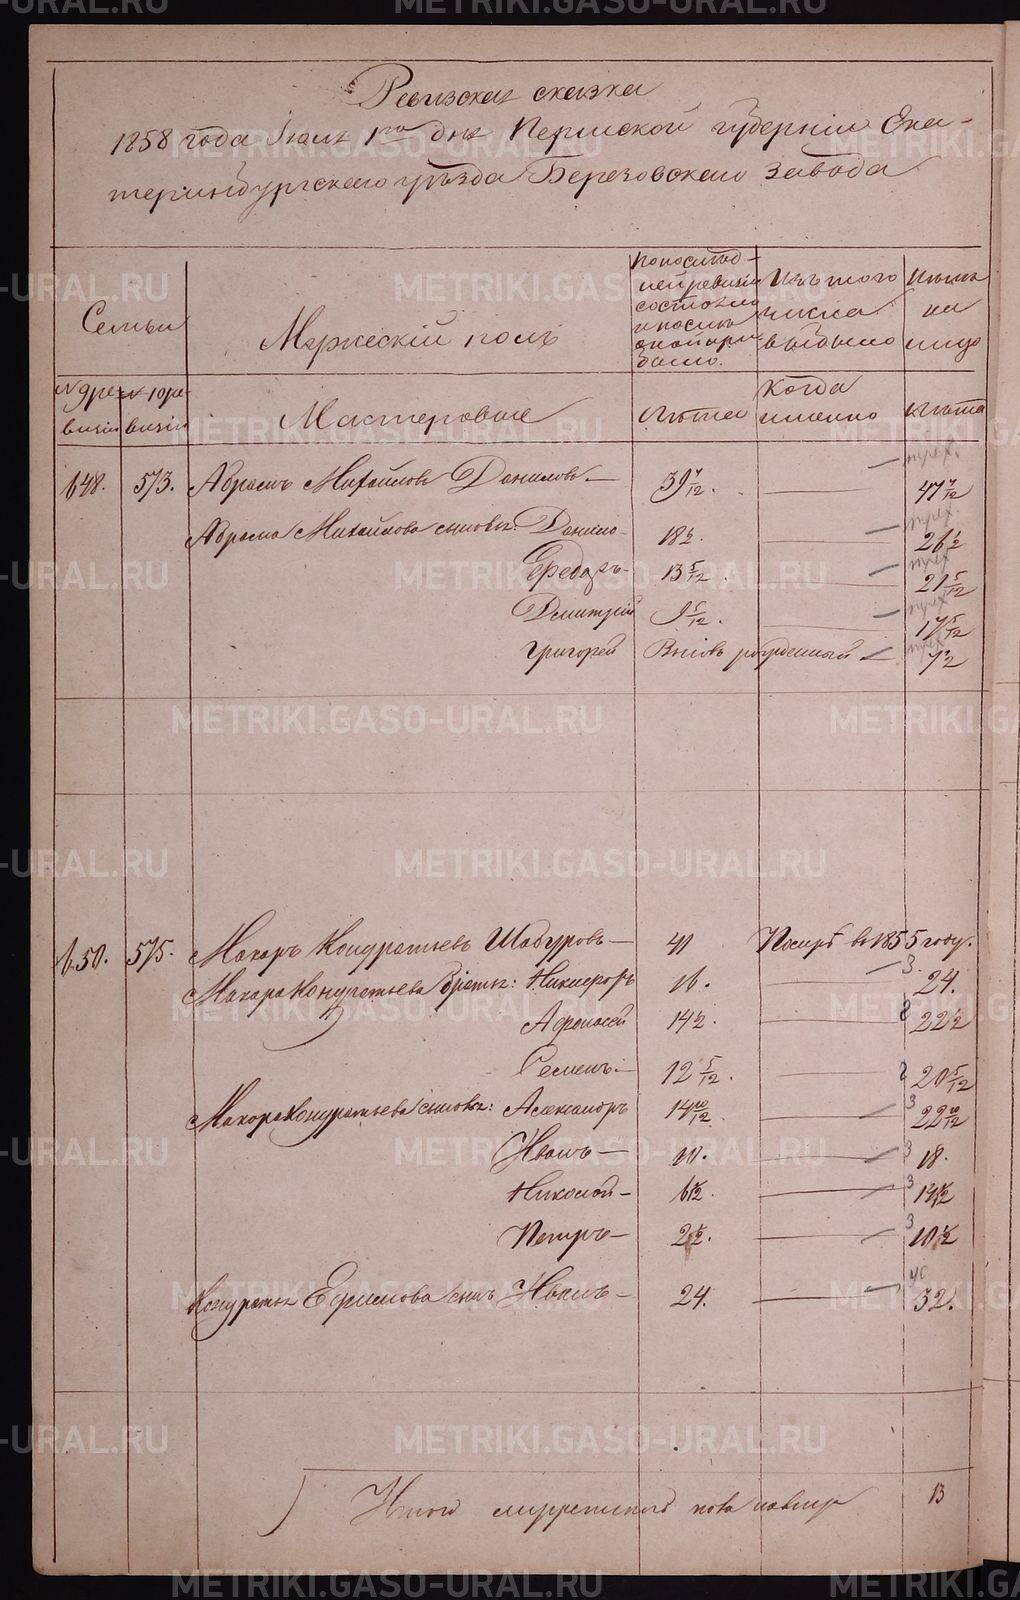 Ревизская сказка
1858 года Іюля 1го дня Пермской губерніи Ека-
теринбургскаго уѣзда Березовскаго завода
Семьи
Мужескій полъ
По послѣд-
ней ревизіи
состояло
и послѣ
оной при-
было.
Изъ того
числа
выбыло
Нынѣ
на
лицо
№ 9 ре-
визіи
№ 10 ре-
визіи
Мастеровые
Лѣта
Когда
именно
Лѣта
прех.
648. 573. Абрамъ Михайловъ Даниловъ — 39 7/12. — 47 7/12
прех.
Абрама Михайлова сыновья: Данило - 18½. — 26½
прех
Ѳедоръ - 13 5/12. — 21 5/12
прех
Дмитрій 9 5/12. — 17 5/12
прех
Григорей Вновь рожденный — 7½
650. 575. Макаръ Кондратьевъ Шабуровъ — 40 Померъ въ 1855 году.
Макара Кондратьева братья: Никифоръ 16. — 3 24.
Афонасей 14½. — 2 22½
Семенъ — 12 5/12. — 2 20 5/12
Макара Кондратьева сыновья: Александръ 14 10/12. — 3 22 10/12
Иванъ — 10. — 3 18.
Николай — 6½. — 3 14½
Петръ — 2½. — 3 10½
Кондратья Ефимова сынъ Иванъ — 24. — 32.
Итого мужескаго пола на лицо 13
METRIKI.GASO-URAL.RU